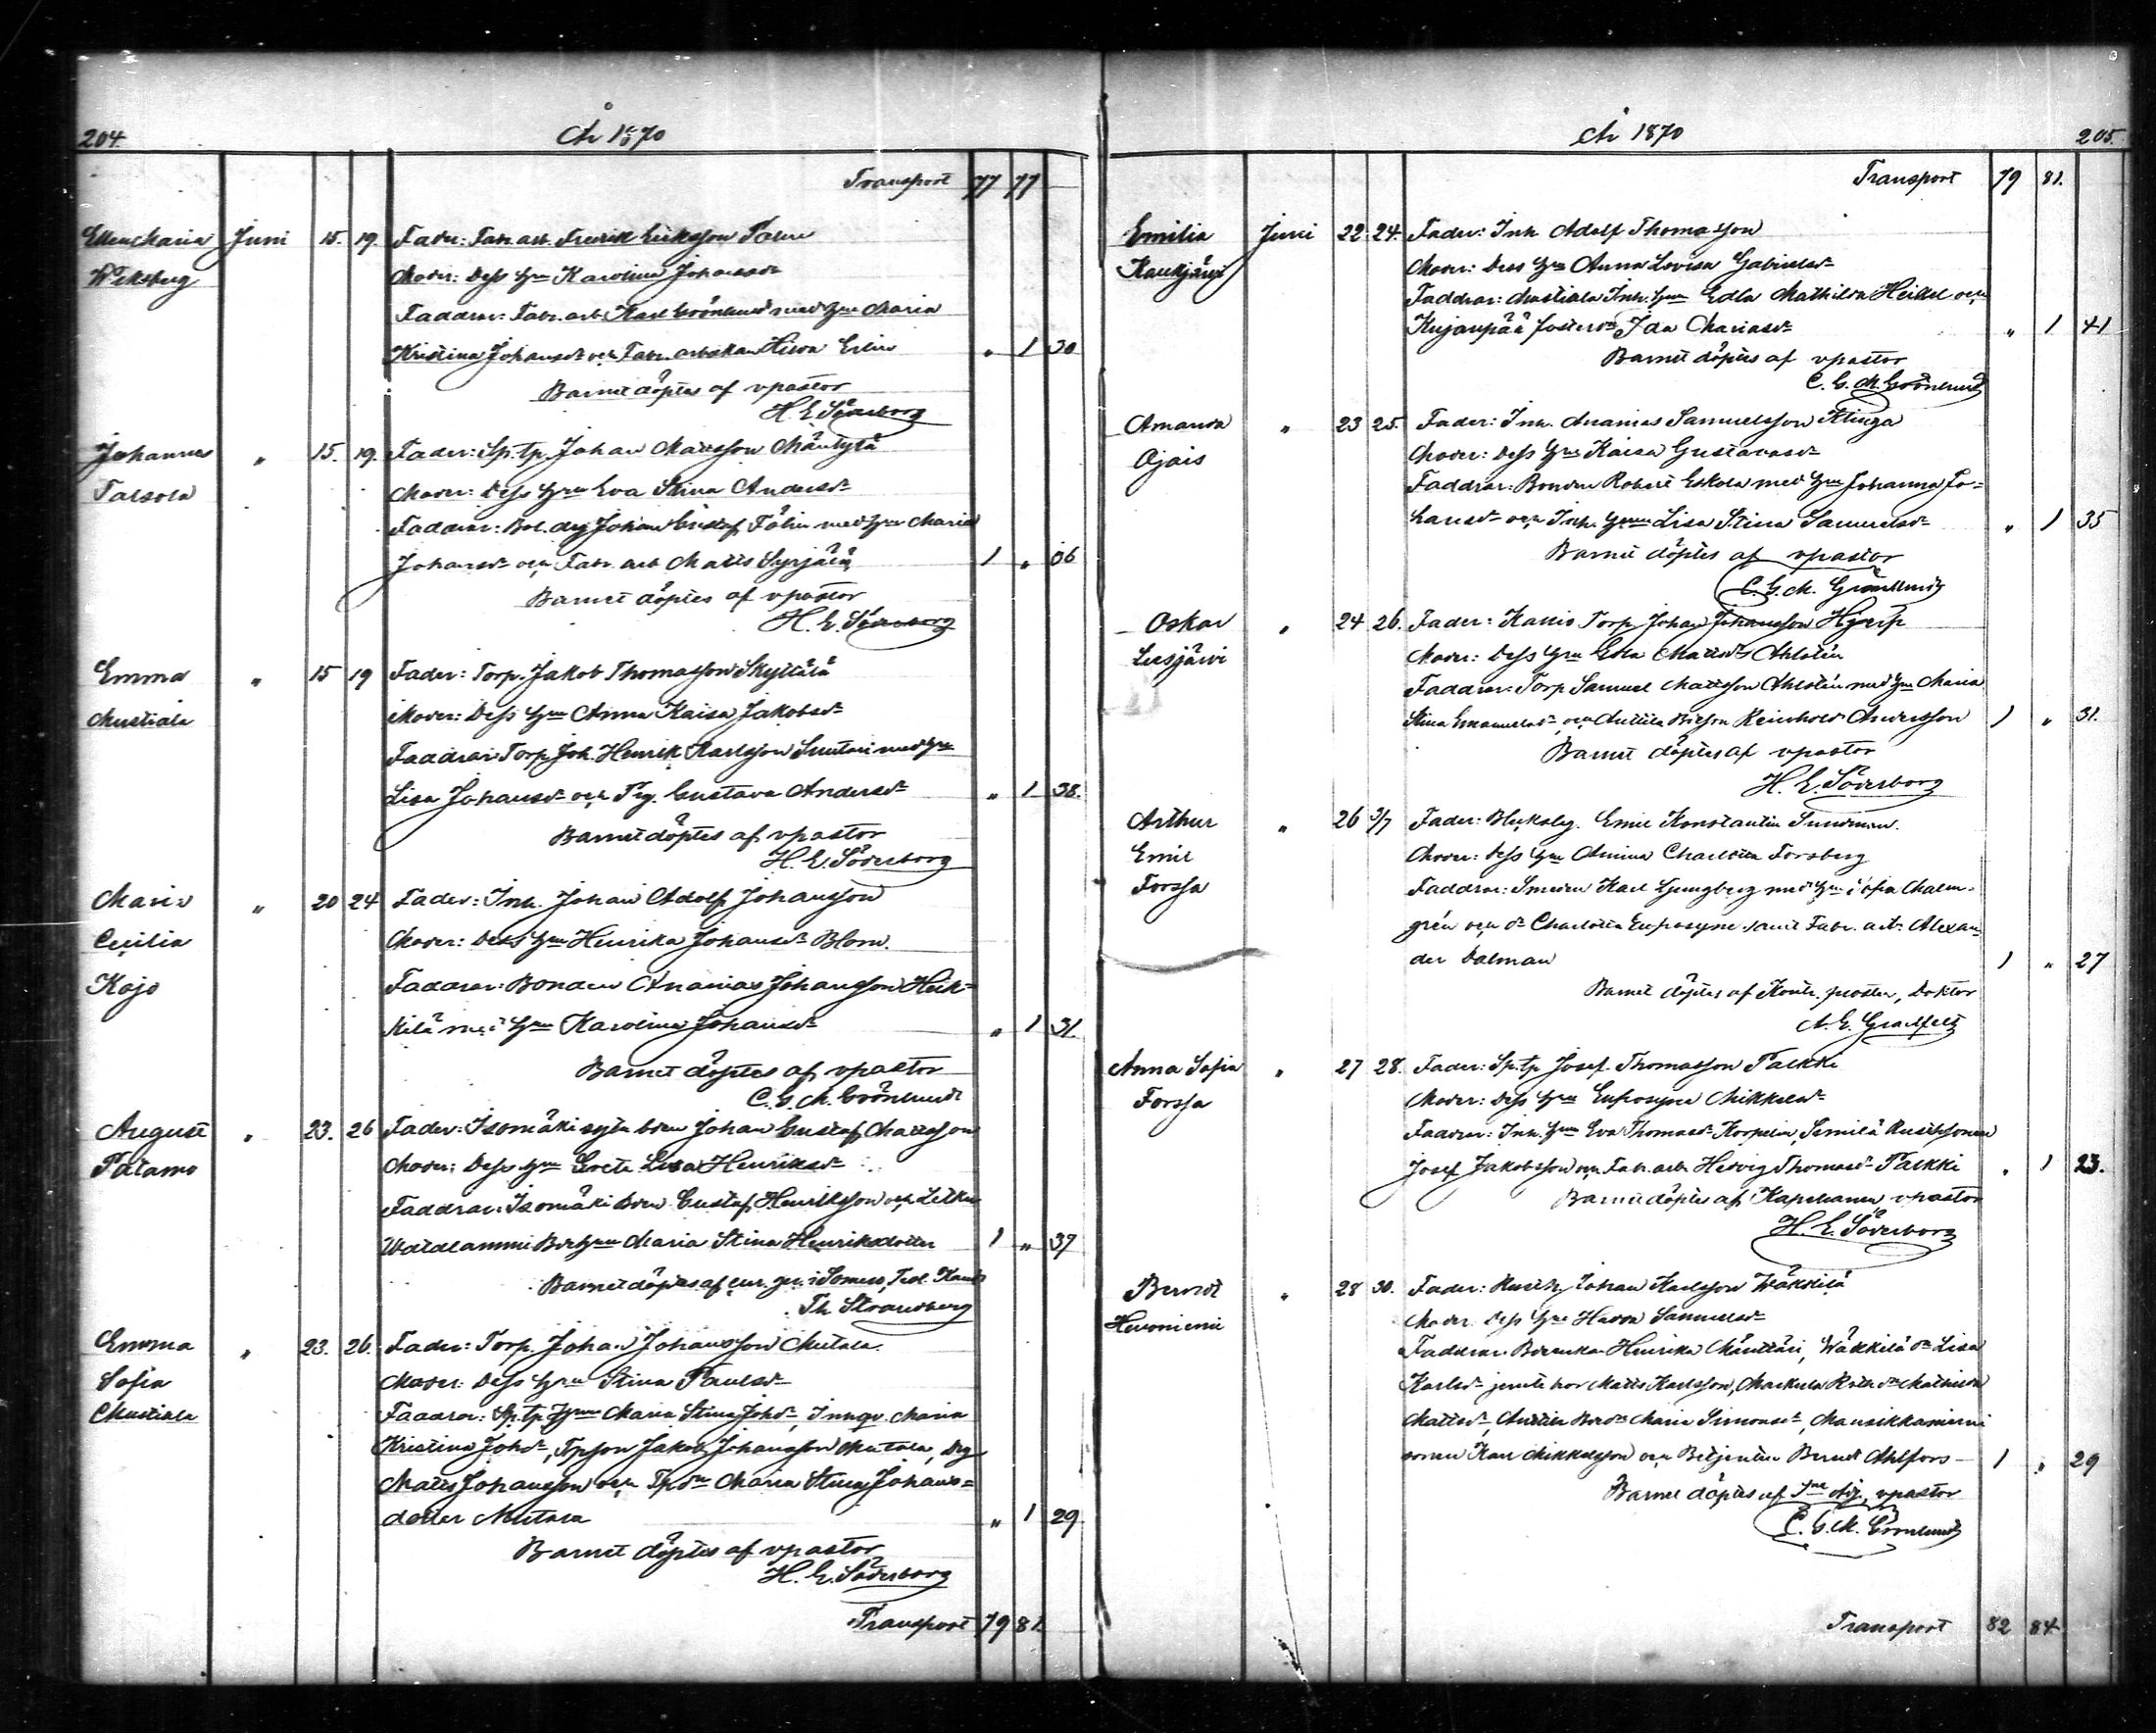 204
År 1870
Transport 77 77
Ellen Maria Juni 15. 19. Fader: Fabr. arb. Fredrik Eriksson
Wiksberg Moder: Dess Hru Karolina Johansdr
Faddrar: Fabr. arb. Karl Grönlund med Hru Maria
Kristina Johansdr och Fabr. arbskan " 1 30
Barnet döptes af vpastor
H. E. Söderborg
Johannes " 15. 19. Fader: Sp. tp. Johan Mattsson Mäntylä
Talsola Moder: Dess Hru Eva Stina Andersdr
Faddrar: Bol. drg Johan Gustaf med Hru Maria
Johansdr och Fabr. arb Matts Syrjälä 1 " 36
Barnet döptes af vpastor
H. E. Söderborg
Emma " 15 19 Fader: Torp. Jakob Thomasson Skyttälä
Mustiala Moder: Dess Hru Anna Kaisa Jakobsdr
Faddrar Torp Joh. Henrik Karlsson Suutari med Hru
Lisa Johansdr och Pig. Gustava Andersdr " 1 38.
Barnet döptes af vpastor
H. E. Söderborg
Maria " 20 24 Fader: Inh. Johan Adolf Johansson
Cecilia Moder: Dess Hru Henrika Johansdr Blom.
Kojo Faddrar: Bonden Ananias Johansson Heik-
kilä med Hru Karolina Johansdr " 1 31.
Barnet döptes af vpastor
C. G. M. Grönlund
August " 23. 26 Fader: Isomäki Johan Gustaf Mattsson
Patamo Moder: Dess Hru Greta Lisa Henriksdr
Faddrar: Isomäki Gustaf Henriksson och Letku
Maria Stina Henriksdotter 1 " 37
Barnet döptes af i Somero,
Th. Strandberg
Emma " 23. 26. Fader: Torp. Johan Johansson Mutala.
Sofia Moder: Dess Hru Stina Paulsdr
Mustiala Faddrar: Sp. tp Hrun Maria Stina Johdr, Innqv. Maria
Kristina Johdr, Tpson Jakob Johansson Mutala, Drg
Matts Johansson och Tpdr Maria Stina Johans-
dotter Mutala " 1 29
Barnet döptes af vpastor
H. E. Söderborg
Transport 79 81
År 1870
205.
Transport 79 81.
Emilia Juni 22 24. Fader: Inh. Adolf Thomasson
Kaukjärvi Moder: Dess Hru Anna Lovisa Gabrielsdr
Faddrar: Mustiala Inh. Hru Edla Mathilda Heikel och
Kujanpää Ida Mariasdr " 1 41
Barnet döptes af vpastor
C. G. M. Grönlund
Amanda " 23 25. Fader: Inh. Ananias Samuelsson Klinga
Ojais Moder: Dess Hru Kaisa Gustavasdr
Faddrar: Bonden Robert Eskola med Hru Johanna Jo-
hansdr och Inh. Hrun Lisa Stina Samuelsdr " 1 35
Barnet döptes af vpastor
C. G. M. Grönlund
Oskar " 24 26. Fader: Torp Johan Johansson Hjerp
Liesjärvi Moder: Dess Hru Edla Mattsdr Ahlstén
Faddrar: Torp Samuel Mattsson Ahlstén med Hru Maria
Stina Emanuelsdr, och Anttila Reinhold Andersson 1 " 31.
Barnet döptes af vpastor
H. E. Söderborg
Arthur " 26 3/7 Fader: Bleckslg. Emil Konstantin Sundman.
Emil Moder: Dess Hru Amina Charlotta Forsberg
Forssa Faddrar: Smeden Karl Ljungberg med Hru Sofia Malm-
grén och dr Charlotta Eufrosyne samt Fabr. arb. Alexan-
der Dalman 1 " 27
Barnet döptes af Kontr. prosten, Doktor
A. E. Granfelt
Anna Sofia " 27 28. Fader: Sp. tp Josef Thomasson Palkki
Forssa Moder: Dess Hru Eufrosyne Mikkelsdr
Faddrar: Inh. Hru Eva Thomasdr
Josef Jakobsson och Fab. arb. Hedvig Thomasdr Palkki " 1 23.
Barnet döptes af Kapellanen vpastor
H. E. Söderborg
Berndt " 28 30. Fader: Johan Karlsson Wäkkilä
Moder Dess Hru Samuelsdr
Faddrar. Henrika Mänttäri, Wäkkilä dr Lisa
Karlsdr jemte bror Matts Karlsson, Markula Mathilda
Mattsdr, Anttila Maria Simonsdr, Mansikkaniemi
sonen Karl Mikkelsson och Betjenten Berndt Ahlfors 1 " 29
Barnet döptes af vpastor
C. G. M. Grönlund
Transport 82 84.